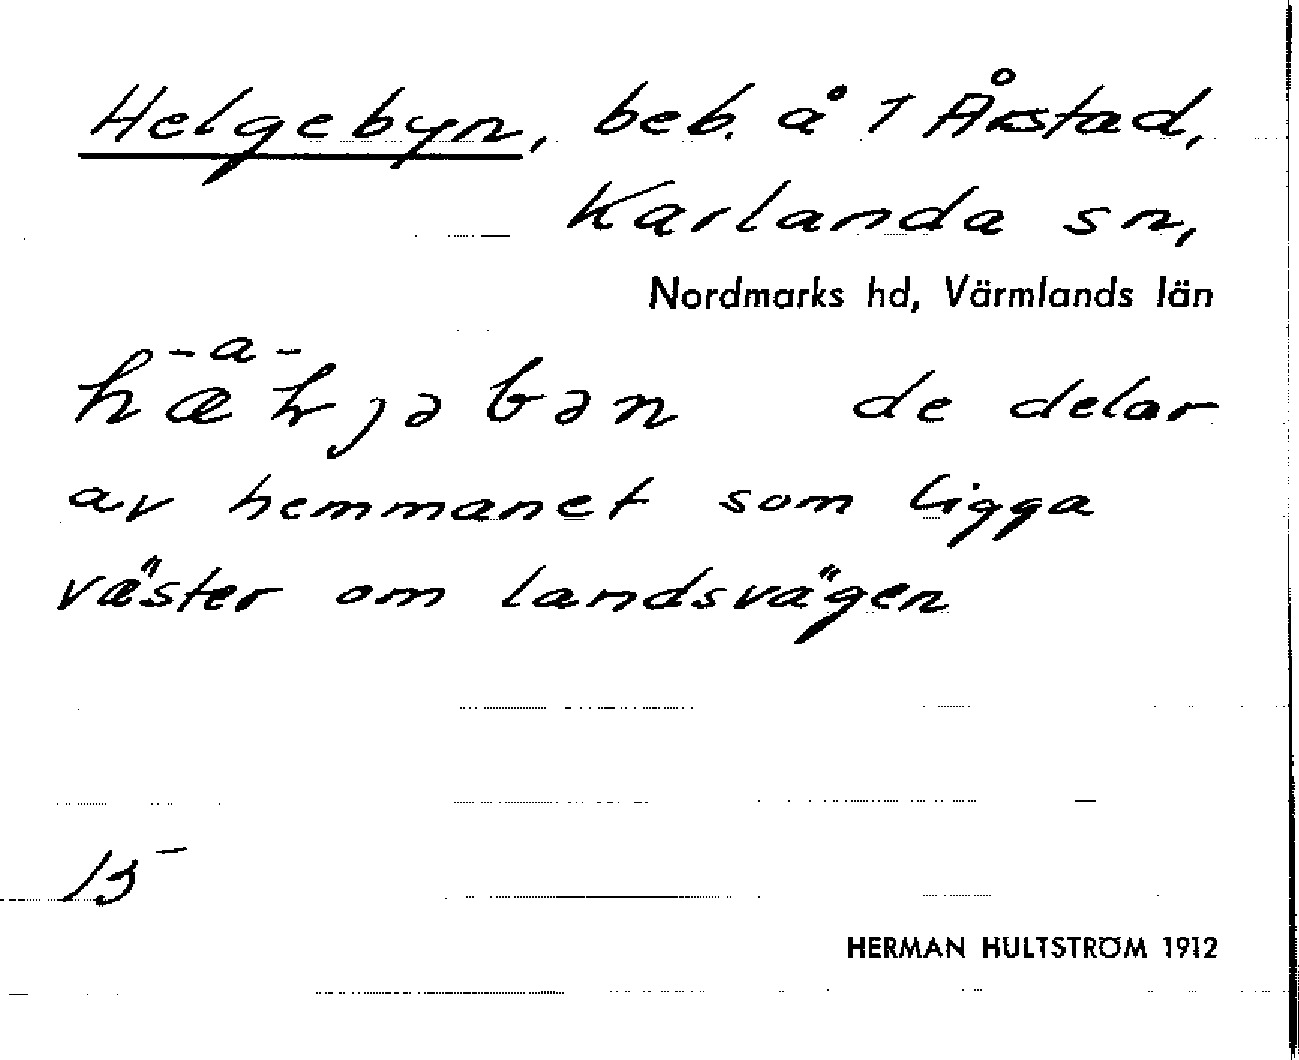 Helgebyn, beb. å 1 Årstad,
Karlanda sn,
Nordmarks hd, Värmlands län
-a-
de delar
av hemmanet som ligga
väster om landsvägen
15
HERMAN HULTSTRÖM 1912